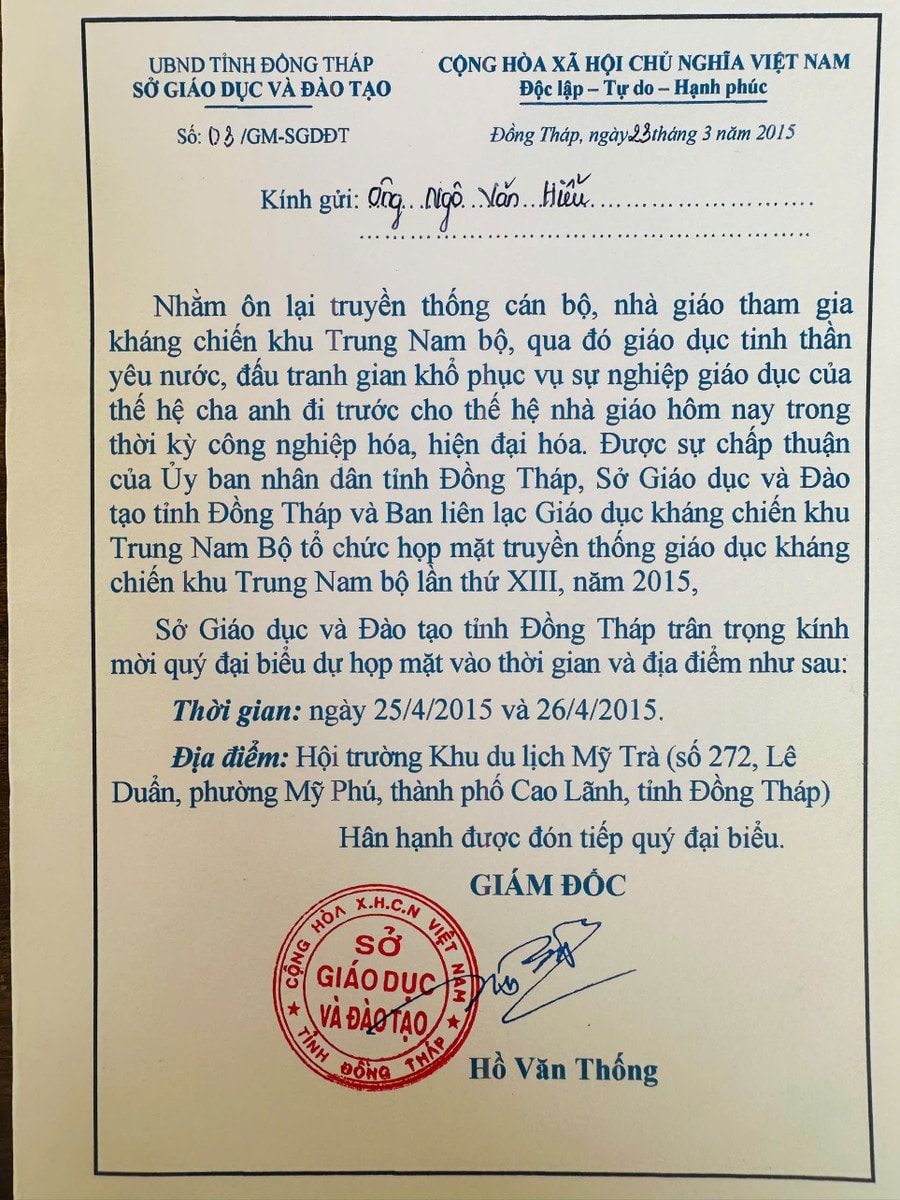 UBND TỈNH ĐỒNG THÁP
SỞ GIÁO DỤC VÀ ĐÀO TẠO
CỘNG HÒA XÃ HỘI CHỦ NGHĨA VIỆT NAM
Độc lập – Tự do – Hạnh phúc
Số: 03 /GM-SGDĐT
Đồng Tháp, ngày 23 tháng 3 năm 2015
Kính gửi: Ông...Ngô...Văn...Hiếu..............................
..........................................................
Nhằm ôn lại truyền thống cán bộ, nhà giáo tham gia
kháng chiến khu Trung Nam bộ, qua đó giáo dục tinh thần
yêu nước, đấu tranh gian khổ phục vụ sự nghiệp giáo dục của
thế hệ cha anh đi trước cho thế hệ nhà giáo hôm nay trong
thời kỳ công nghiệp hóa, hiện đại hóa. Được sự chấp thuận
của Ủy ban nhân dân tỉnh Đồng Tháp, Sở Giáo dục và Đào
tạo tỉnh Đồng Tháp và Ban liên lạc Giáo dục kháng chiến khu
Trung Nam Bộ tổ chức họp mặt truyền thống giáo dục kháng
chiến khu Trung Nam bộ lần thứ XIII, năm 2015,
Sở Giáo dục và Đào tạo tỉnh Đồng Tháp trân trọng kính
mời quý đại biểu dự họp mặt vào thời gian và địa điểm như sau:
Thời gian: ngày 25/4/2015 và 26/4/2015.
Địa điểm: Hội trường Khu du lịch Mỹ Trà (số 272, Lê
Duẩn, phường Mỹ Phú, thành phố Cao Lãnh, tỉnh Đồng Tháp)
Hân hạnh được đón tiếp quý đại biểu.
GIÁM ĐỐC
CỘNG HÒA X.H.C.N VIỆT NAM
SỞ
GIÁO DỤC
VÀ ĐÀO TẠO
★ TỈNH ĐỒNG THÁP ★
Hồ Văn Thống